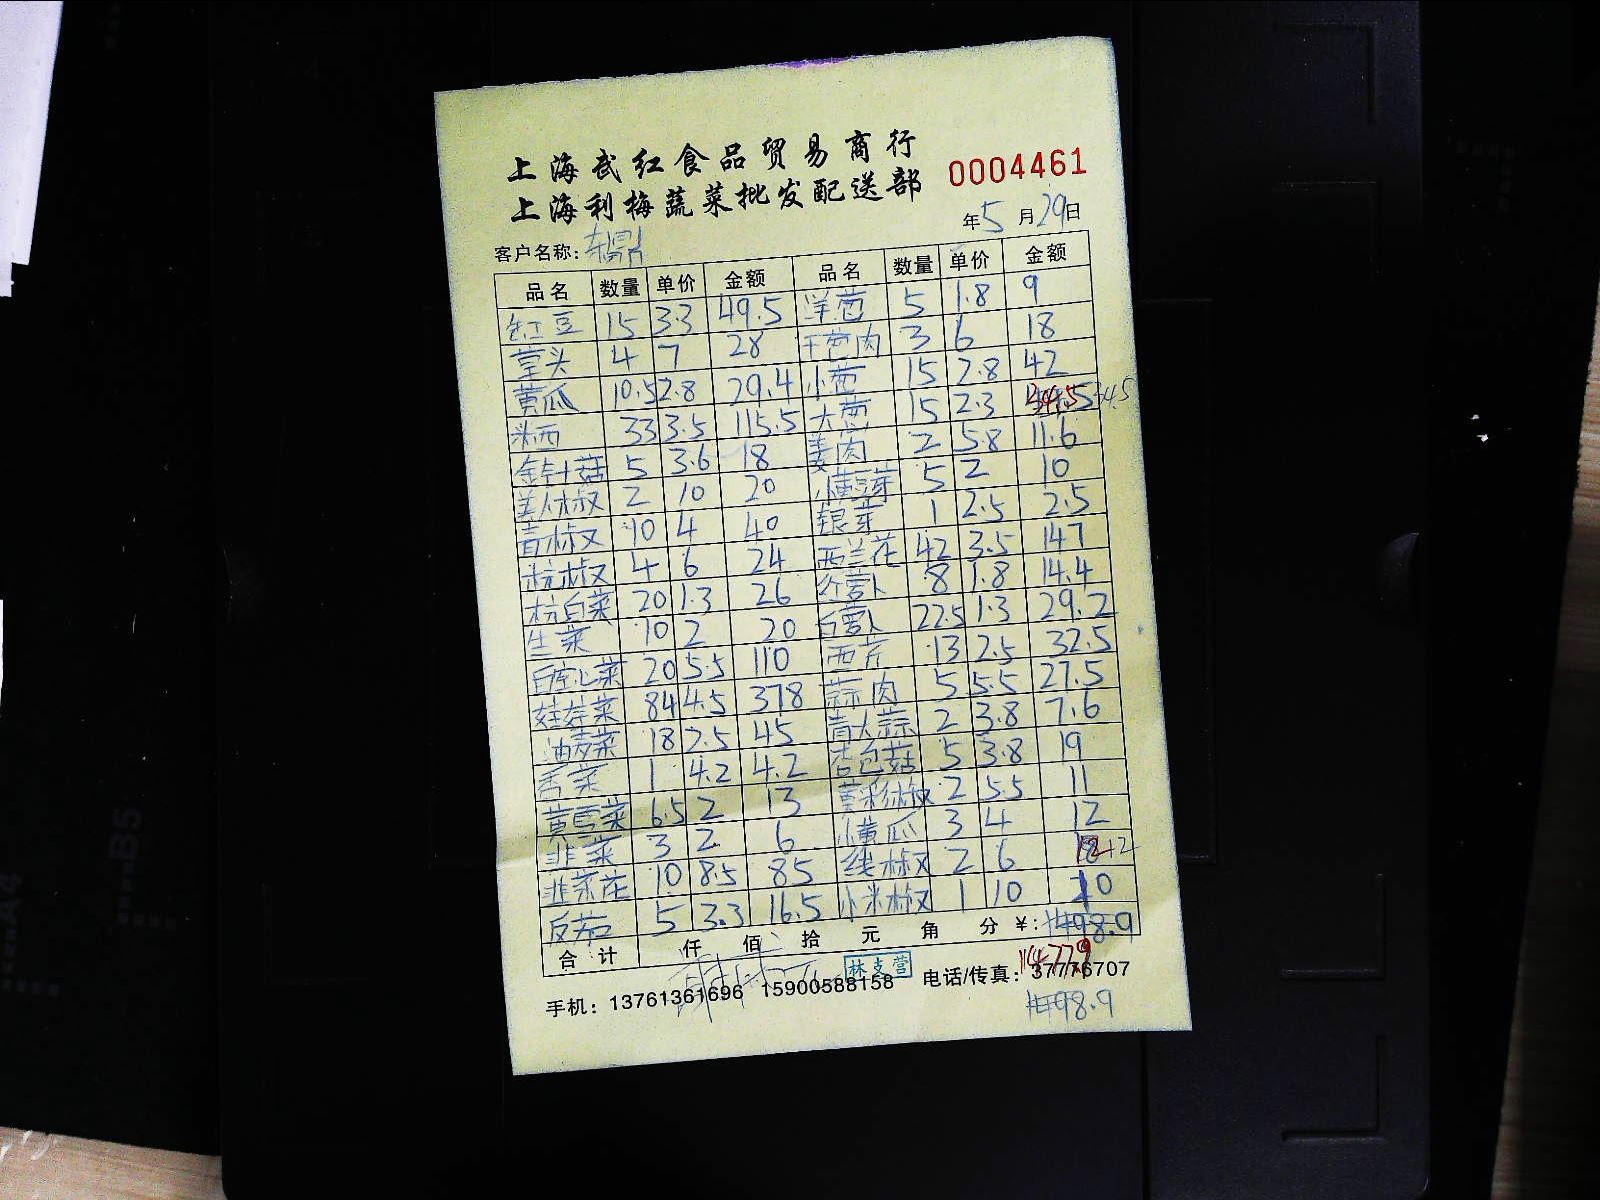 上海武红食品贸易商行
上海利梅蔬菜批发配送部
0004461
年5月29日
客户名称：东鼎
品名 数量 单价 金额 品名 数量 单价 金额
缸豆 15 3.3 49.5 洋葱 5 1.8 9
草头 4 7 28 干葱肉 3 6 18
黄瓜 10.5 2.8 29.4 小葱 15 2.8 42
米西 33 3.5 115.5 大葱 15 2.3 34.5
金针菇 5 3.6 18 姜肉 2 5.8 11.6
美人椒 2 10 20 小黄豆芽 5 2 10
青椒 10 4 40 银芽 1 2.5 2.5
杭椒 4 6 24 西兰花 42 3.5 147
杭白菜 20 1.3 26 红萝卜 8 1.8 14.4
生菜 10 2 20 白萝卜 22.5 1.3 29.2
白空心菜 20 5.5 110 西芹 13 2.5 32.5
娃娃菜 84 4.5 378 蒜肉 5 5.5 27.5
油麦菜 18 2.5 45 青大蒜 2 3.8 7.6
香菜 1 4.2 4.2 杏包菇 5 3.8 19
黄雪菜 6.5 2 13 黄彩椒 2 5.5 11
韭菜 3 2 6 小黄瓜 3 4 12
韭菜花 10 8.5 85 线椒 2 6 12
反茄 5 3.3 16.5 小米椒 1 10 10
合计 仟 佰 拾 元 角 分 ¥：1498.9
1477.9
手机：13761361696 15900588158 林支营 电话/传真：37776707
1498.9